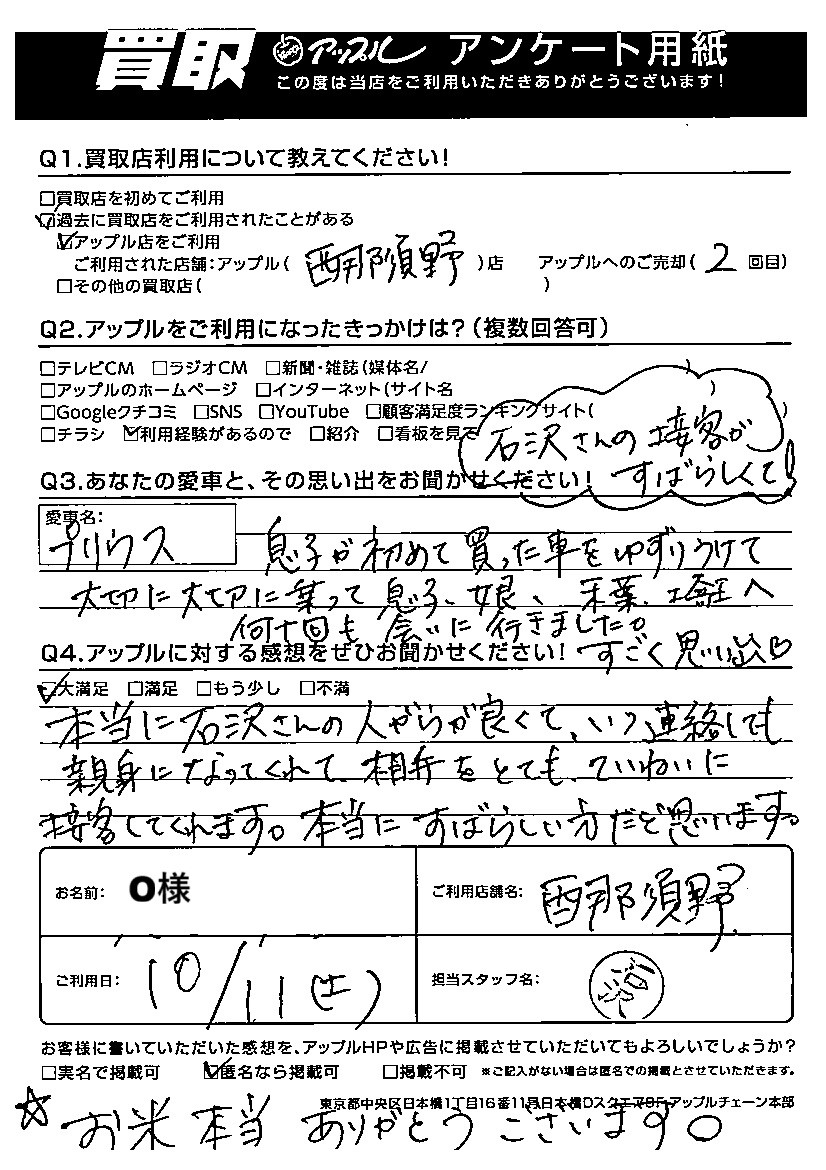 買取 アップル アンケート用紙
この度は当店をご利用いただきありがとうございます!
Q1.買取店利用について教えてください!
□買取店を初めてご利用
☑過去に買取店をご利用されたことがある
☑アップル店をご利用
ご利用された店舗:アップル(西那須野)店 アップルへのご売却(2回目)
□その他の買取店( )
Q2.アップルをご利用になったきっかけは?(複数回答可)
□テレビCM □ラジオCM □新聞・雑誌(媒体名/ )
□アップルのホームページ □インターネット(サイト名 )
□Googleクチコミ □SNS □YouTube □顧客満足度ランキングサイト( )
□チラシ ☑利用経験があるので □紹介 □看板を見て
石沢さんの接客が
すばらしくて!
Q3.あなたの愛車と、その思い出をお聞かせください!
愛車名:
プリウス
息子が初めて買った車をゆずりうけて
大切に大切に乗って息子、娘、千葉、埼玉へ
何十回も会いに行きました。
すごく思い出♡
Q4.アップルに対する感想をぜひお聞かせください!
☑大満足 □満足 □もう少し □不満
本当に石沢さんの人がらが良くて、いつ連絡しても
親身になってくれて相手をとても、ていねいに
接客してくれます。本当にすばらしい方だと思います。
お名前: O様
ご利用店舗名: 西那須野
ご利用日: 10/11(土)
担当スタッフ名:
お客様に書いていただいた感想を、アップルHPや広告に掲載させていただいてもよろしいでしょうか?
□実名で掲載可 ☑匿名なら掲載可 □掲載不可 ※ご記入がない場合は匿名での掲載とさせていただきます。
東京都中央区日本橋1丁目16番11号日本橋Dスクエア8F アップルチェーン本部
☆お米本当ありがとうございます。